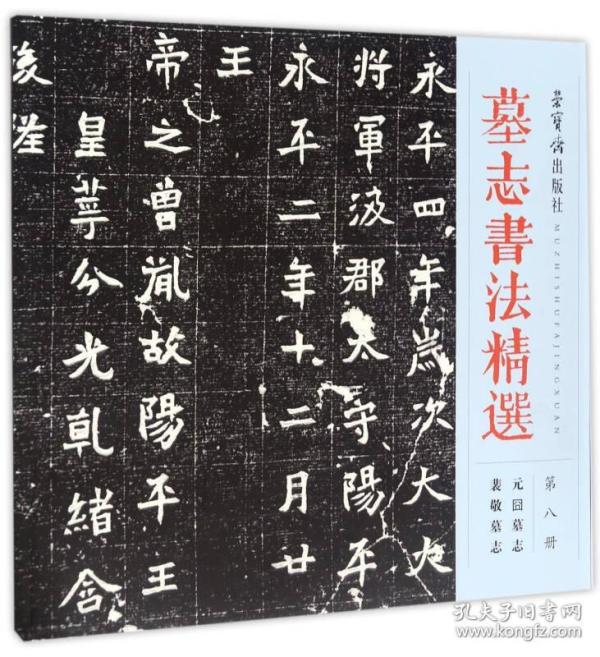 荣寶齋出版社
墓志書法精選
MUZHISHUFAJINGXUAN
第八册
元囧墓志
裴敬墓志
永平四年歲次大
將軍汲郡太守陽平
永平二年十二月廿
王
帝之曾胤故陽平王
皇萼分光乹緒含
孔夫子旧書网
www.kongfz.com